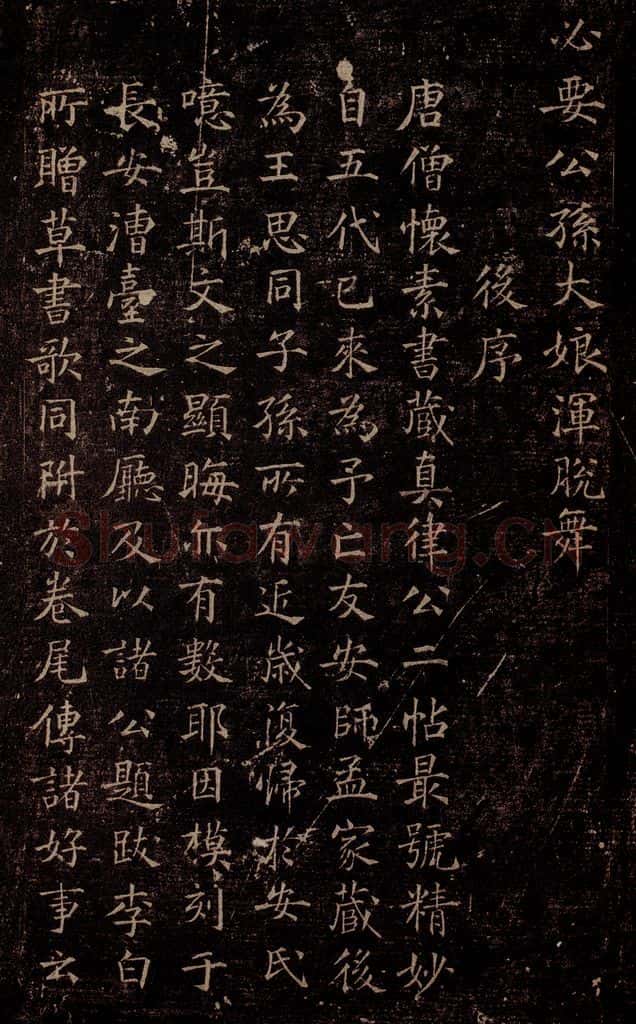 必要公孫大娘渾脫舞
後序
唐僧懷素書藏真律公二帖最號精妙
自五代已來為予亡友安師孟家藏後
為王思同子孫所有近歲復歸於安氏
噫豈斯文之顯晦亦有數耶因模刻于
長安漕臺之南廳及以諸公題跋李白
所贈草書歌同附於卷尾傳諸好事云
Shufawang.cn